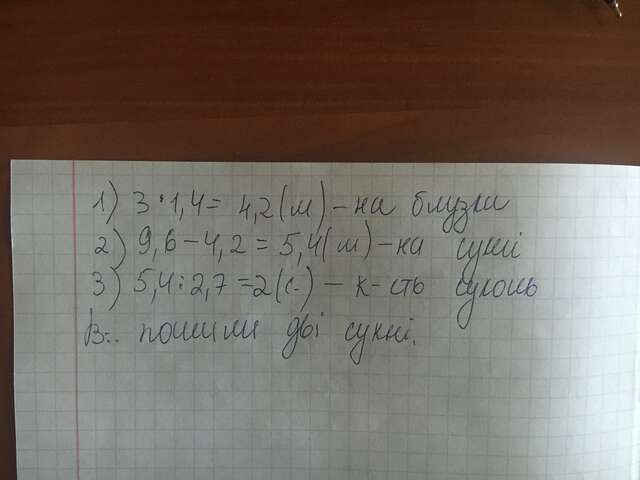 1) 3·1,4= 4,2(м)-на блузки
2) 9,6-4,2=5,4(м)-на сукні
3) 5,4:2,7=2(с.) - к-сть суконь
В.: пошили дві сукні.